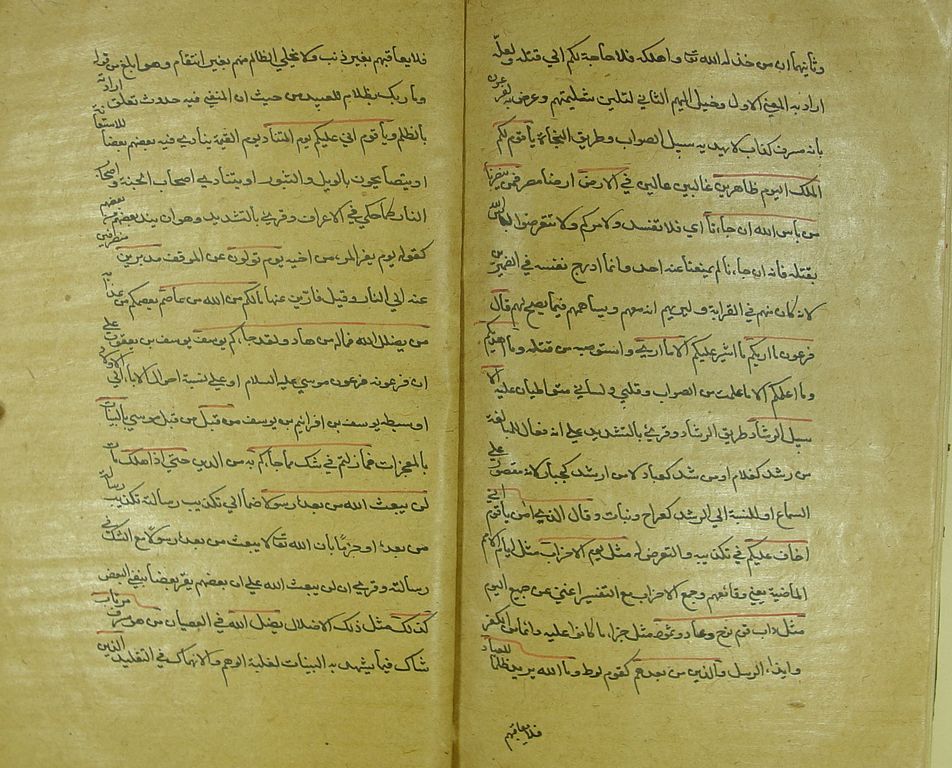 وثانيهما ان من خذله الله تعا واهلكه فلا حاجة لكم الي قتله ولعله
اراد به المعنى الاول وخيل اليهم الثاني لتلين شكيمتهم وعرض به لفرعون
بانه مسرف كذاب لا يهديه سبيل الصواب وطريق النجاة يا قوم لكم
الملك اليوم ظاهرين غالبين عالين في الارض ارض مصر فمن ينصرنا
من باس الله ان جاءنا اي فلا تفسدوا امركم ولا تتعرضوا لباس الله
بقتله فانه ان جاءنا لم يمنعنا عنه احد وانما ادرج نفسه في الضميرين
لانه كان منهم في القرابة وليريهم انه معهم ويساهمهم فيما ينصح لهم قال
فرعون ما اريكم ما اشير عليكم الا ما اري واستصوبه من قتله وما اهديكم
وما اعلمكم الا ما علمت من الصواب وقلبي ولساني متواطيان عليه الا
سبيل الرشاد طريق الرشاد وقرئ بالتشديد على انه فعال للمبالغة
من رشد كعلام او من رشد كعباد لا من ارشد كجبار لانه مقصور على
السماع او للنسبة الي الرشد كعواج وبتات وقال الذي امن يا قوم اني
اخاف عليكم في تكذيبه والتعرض له مثل يوم الاحزاب مثل ايام الامم
الماضية يعني وقائعهم وجمع الاحزاب مع التفسير اغني عن جمع اليوم
مثل داب قوم نوح وعاد وثمود مثل جزاء ما كانوا عليه دائما من الكفر
وايذاء الرسل والذين من بعدهم كقوم لوط وما الله يريد ظلما للعباد
فلا يعاقبهم
فلا يعاقبهم بغير ذنب ولا يخلي الظالم منهم بغير انتقام وهو ابلغ من قوله
وما ربك بظلام للعبيد من حيث ان المنفي فيه حدوث تعلق ارادته
بالظلم ويا قوم اني عليكم يوم التناد يوم القيمة ينادي فيه بعضهم بعضا للاستغاثة
او يتصايحون بالويل والثبور او يتنادي اصحاب الجنة واصحاب
النار كما حكي في الاعراف وقرئ بالتشديد وهو ان يند بعضهم من بعض
كقوله يوم يفر المرء من اخيه يوم تولون عن الموقف مدبرين منصرفين
عنه الي النار وقيل فارين عنها ما لكم من الله من عاصم يعصمكم من عذابه
من يضلل الله فما له من هاد ولقد جاءكم يوسف يوسف بن يعقوب علي
ان فرعونه فرعون موسي عليه السلام او علي نسبة احوال الاباء الي الاولاد
او سبطه يوسف بن افراييم بن يوسف من قبل من قبل موسي بالبينات
بالمعجزات فما زلتم في شك مما جاءكم به من الدين حتي اذا هلك مات
لن يبعث الله من بعده رسولا ضما الي تكذيب رسالته تكذيب رسالة
من بعده او جزما بان الله تعا لا يبعث من بعده رسولا مع الشك في
رسالته وقرئ ان لن يبعث الله علي ان بعضهم يقرر بعضا بنفي البعث
كذلك مثل ذلك الاضلال يضل الله في العصيان من هو مسرف مرتاب
شاك فيما يشهد به البينات لغلبة الوهم والانهماك في التقليد الذين